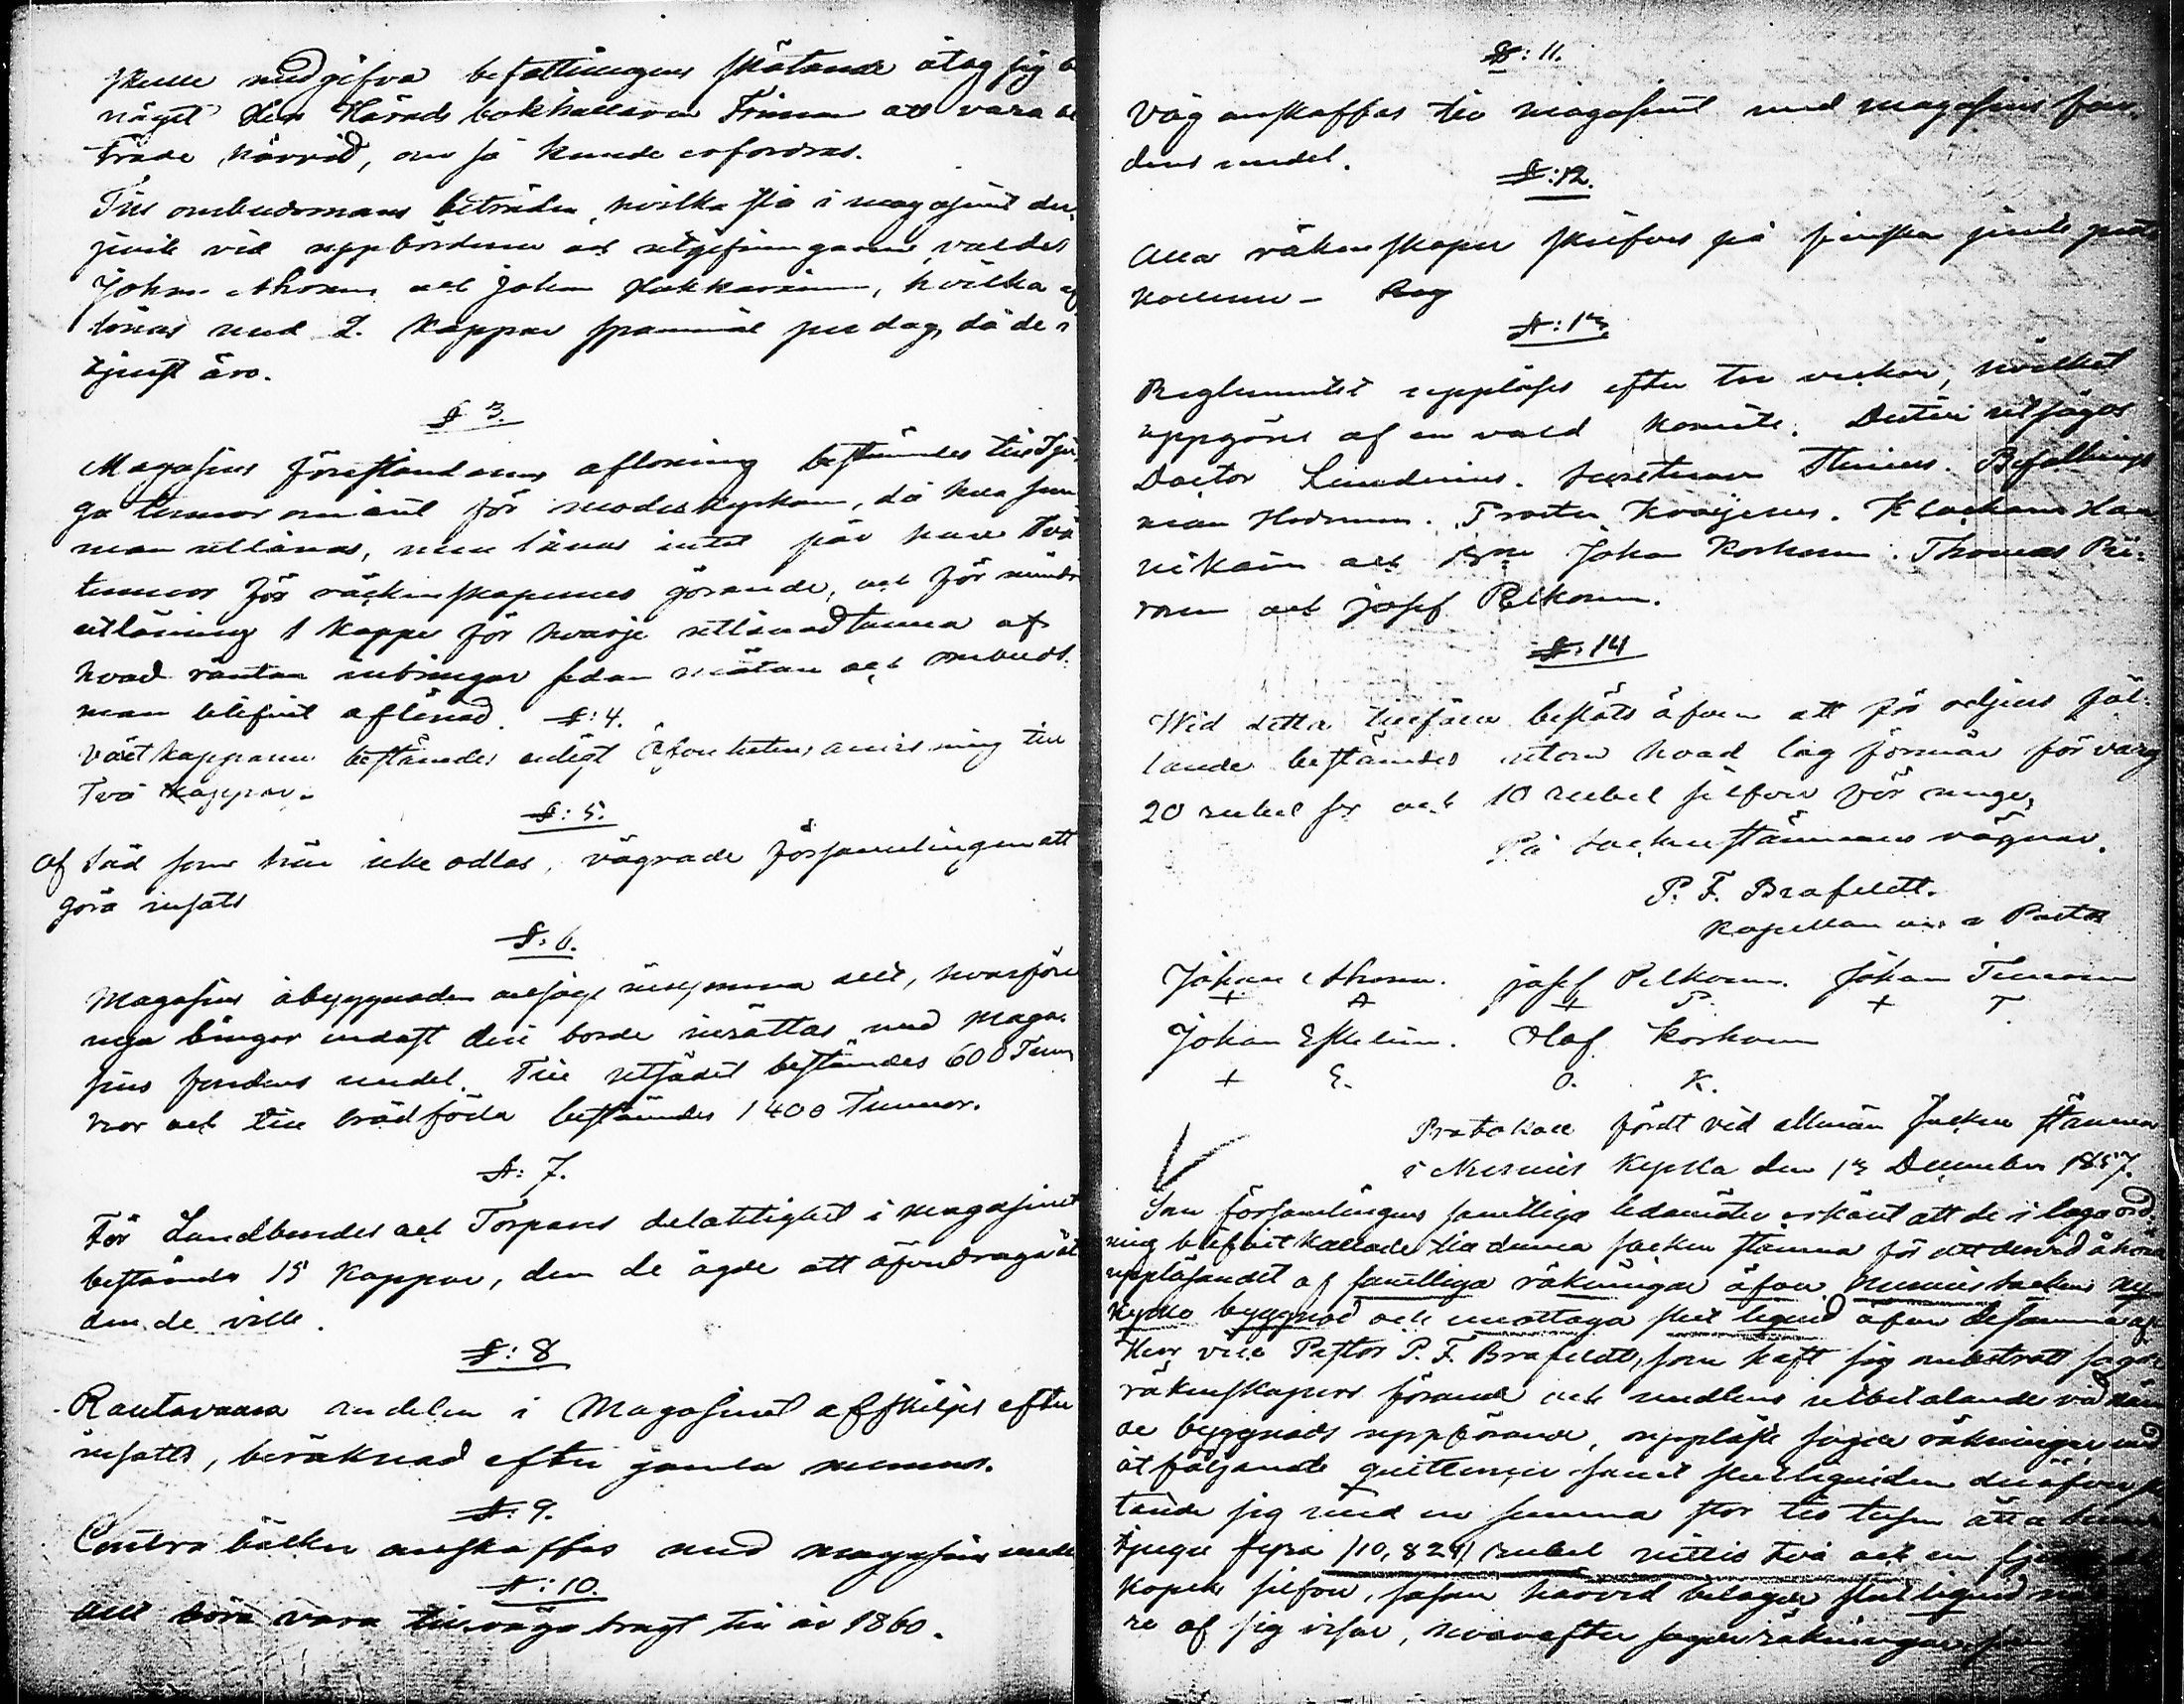 skulle medgifva befattningens skötande åtog sig
något Herr Härads bokhållaren Friman att vara
träde härvid, om så kunde erfordras.
Till ombudsmans biträden, hvilka stå i magasinet der
vid uppbörderne och utgifningarne, valdes
Johan Ahonen och Johan Hakkarainen, hvilka
lönas med 2 kappar spannmål per dag, då de i
tjenst äro.
§ 3.
Magasins föreståndarens aflöning bestämdes till tju-
go tunnor om året för moderkyrkan, då hela
man utlånas, men lånas intet får han två
tunnor för räkenskapernes görande, och för mindre
utlåning 1 kappe för hvarje utlånad tunna af
hvad räntan inbringar sedan mätare och ombuds-
man blifvit aflönad. §: 4.
kapparne bestämdes enligt Öfverhetens anvisning till
Två kappar.
§: 5.
Af säd som här icke odlas, vägrade församlingen att
göra insats
§: 6.
Magasins åbyggnaden rymma allt, hvarföre
nya bingar endast deri borde inrättas med maga-
sins fondens medel. Till utsädet bestämdes 600 Tun
nor och till brödföda bestämdes 1400 Tunnor.
§: 7.
För Landbondes och Torpares delaktighet i magasinet
bestämdes 15 kappar, dem de ägde att öfverdraga åt
dem de ville.
§: 8
Rautavaara andelen i Magasinet afskiljes efter
insatts, beräknad efter gamla
§: 9.
Contra böcker anskaffas med magasins medel
§: 10.
Allt böra vara tillväga bragt till år 1860.
§: 11.
Våg anskaffas till magasinet med magasins fon-
dens medel.
§: 12.
Alla räkenskaper skrifves på finska jemte proto
kollerne –
§: 13
Reglementet uppläses efter tre veckor, hvilket
uppgöres af en vald komité. Dertill utsågos
Doctor Lundenius. Befallnings
man Hedman. Klockaren
och Johan Korhonen. Thomas
och Josef Pelkonen.
§: 14
Wid detta tillfälle beslöts äfven att för odjurs fäl-
lande bestämdes utom hvad lag förmår för varg
20 rubel sr och 10 rubel silfver för unge,
På sockenstämmans vägnar.
P. F. Brofeldt.
Kapellan
Johan Ahonen. Josef Pelkonen. Johan
+ A + P. + T
Johan Eskelin. Olof Korhonen
+ E. O. K.
Protokoll fördt vid allmän Socken stämma
i Nurmis Kyrka den 13 December 1857.
San församlingens samtlige ledamöter erkänt att de i laga ord-
ning blifvit kallade till denna socken stämma för att dervid åhöra
uppläsandet af samtliga räkningar öfver Nurmis sockens ny
kyrko byggnad och emottaga slut liquid öfver desamma af
Herr vice Pastor P. F. Brofeldt, som haft sig ombetrott sagde
räkenskapers förande och medlens utbetalande vid
de byggnads uppförande, upplästes sagde räkningar med
åtföljande quittencer samt slutliquiden deröfver
tande sig med en summa stor tio tusen åtta hundra
tjugu fyra /10,824/ rubel nittio två och en
kopek silfver, såsom härvid bilagde slutliquid
re af sig visar, hvarefter sagde räkningar